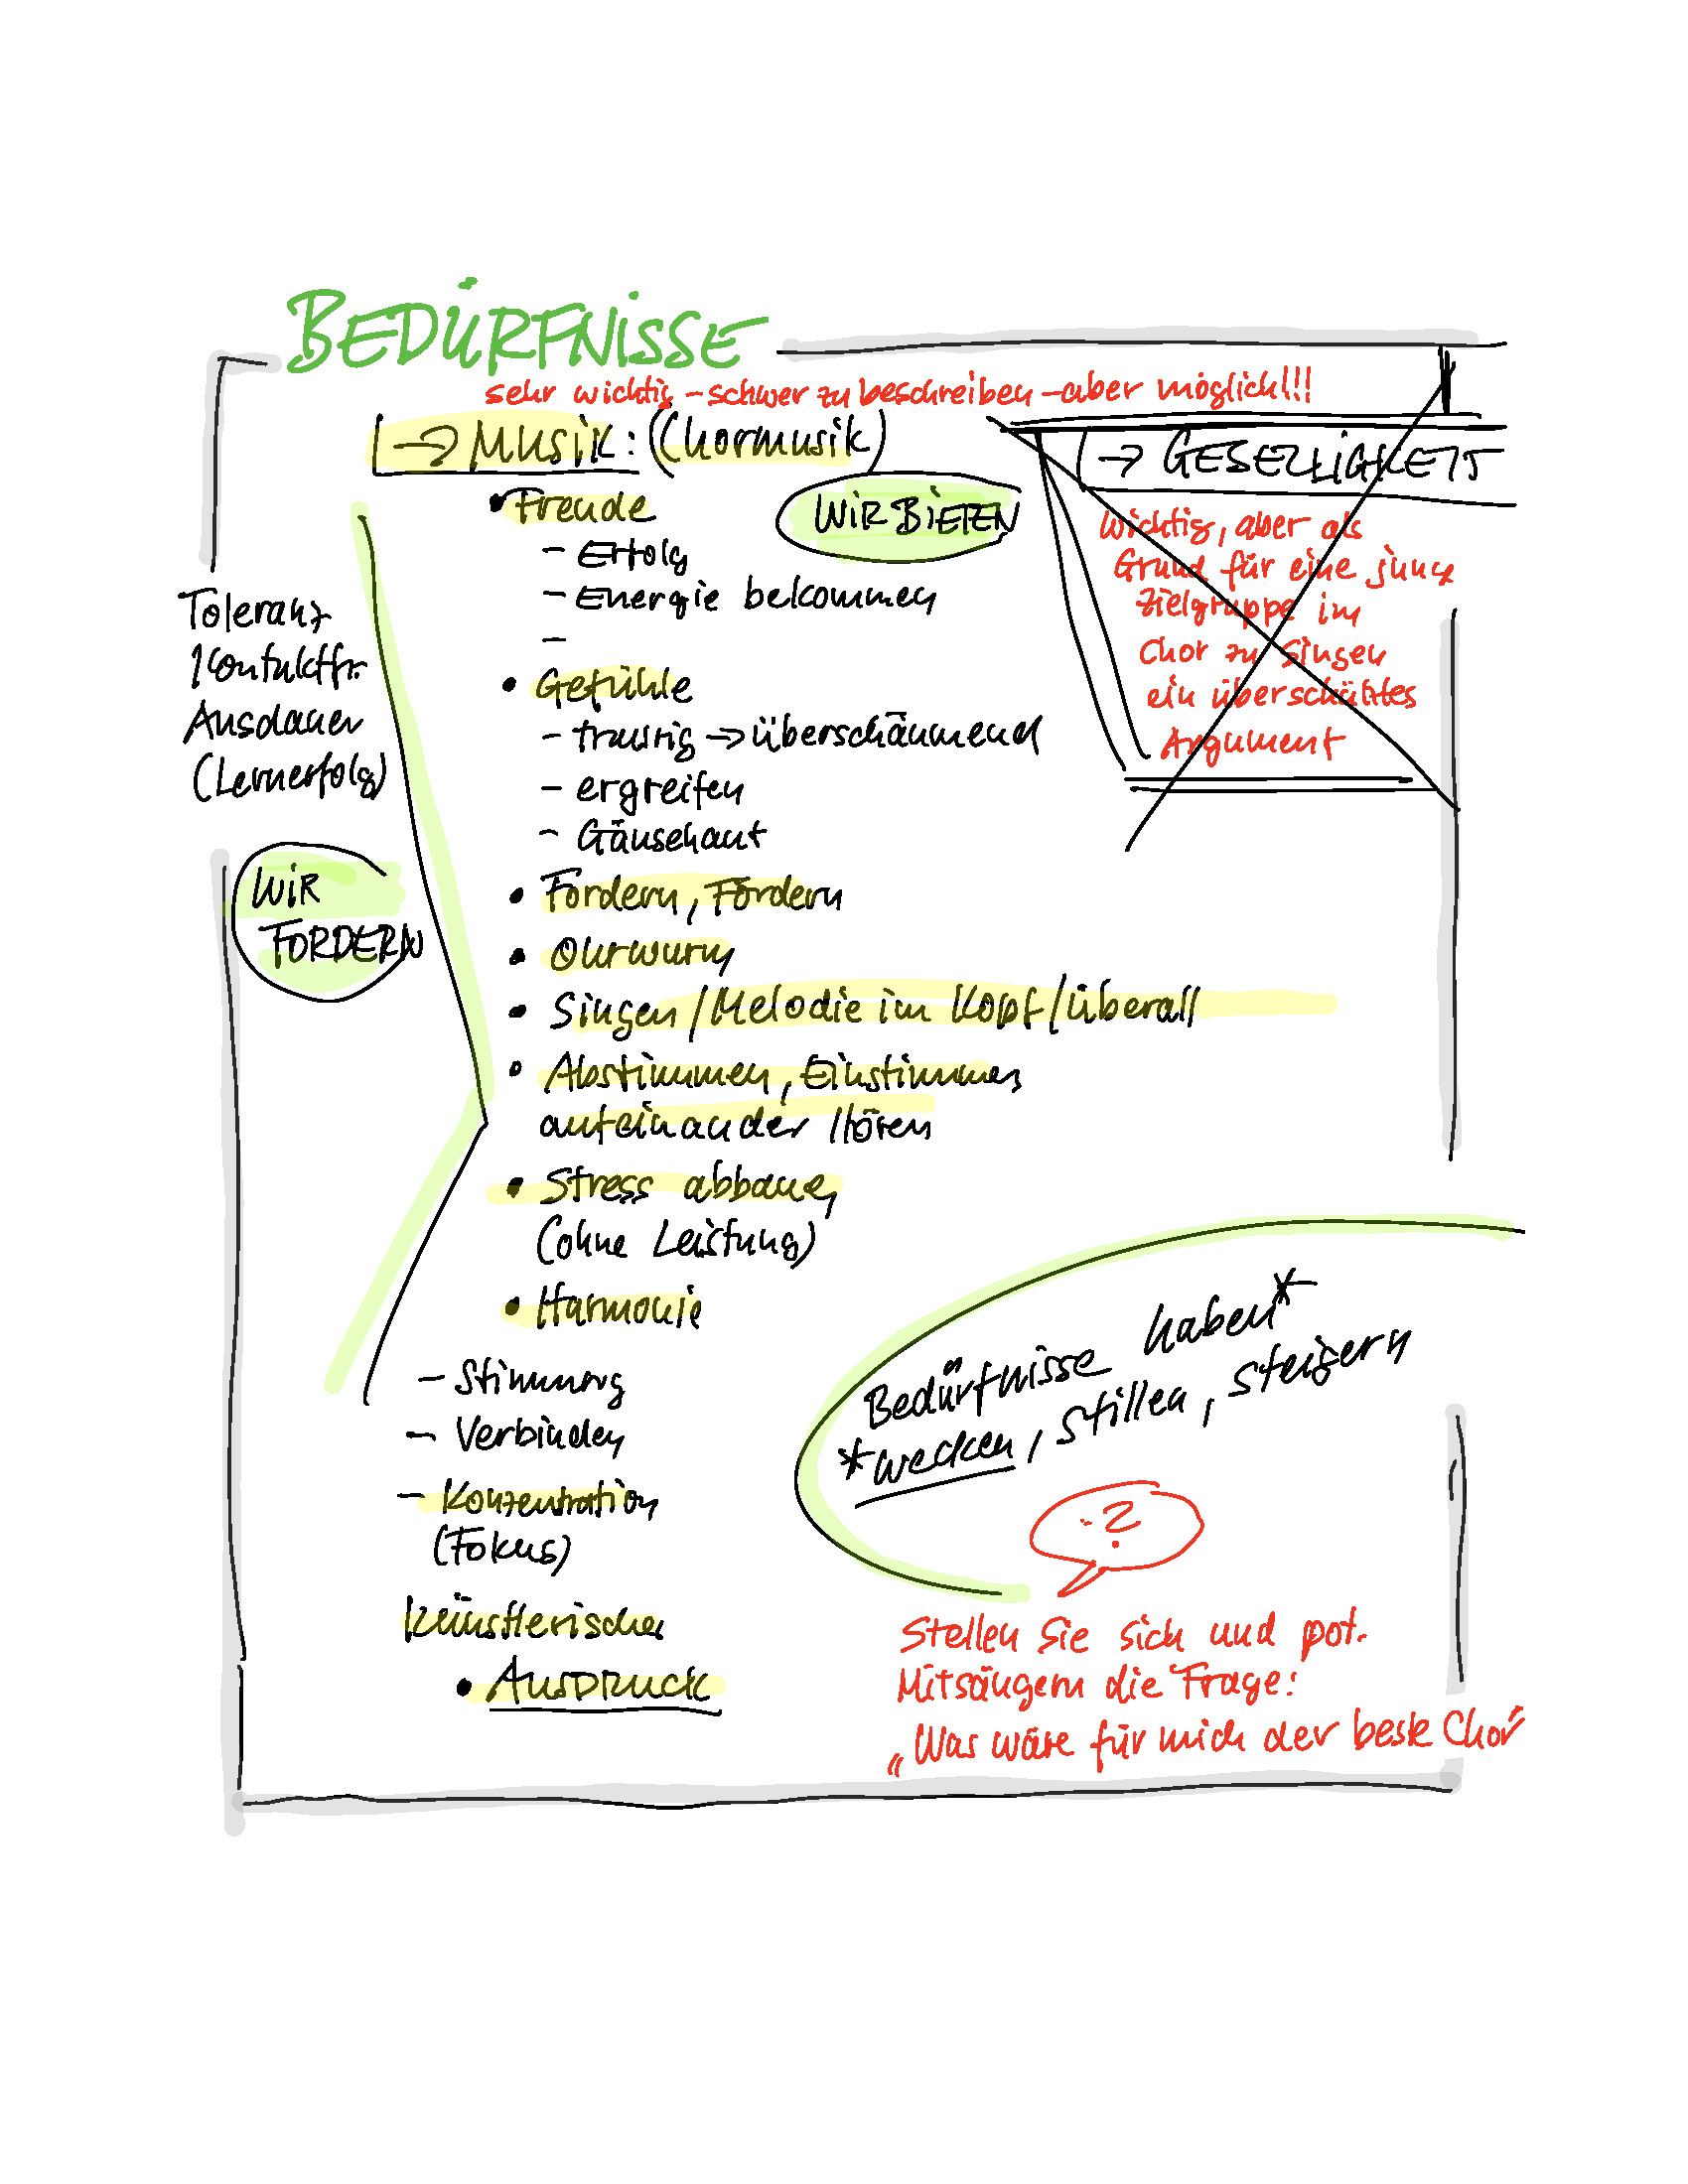 BEDÜRFNISSE
sehr wichtig – schwer zu beschreiben – aber möglich!!!
→ Musik: (Chormusik)
WIR BIETEN
• Freude
– Erfolg
– Energie bekommen
–
• Gefühle
– traurig → überschäumend
– ergreifen
– Gänsehaut
• Fordern, Fördern
• Ohrwurm
• Singen/Melodie im Kopf/überall
• Abstimmen, Einstimmen
aufeinander Hören
• Stress abbauen
(ohne Leistung)
• Harmonie
– Stimmung
– Verbinden
– Konzentration
(Fokus)
künstlerischer
• AUSDRUCK
Toleranz
Kontaktfr.
Ausdauer
(Lernerfolg)
WIR
FORDERN
→ GESELLIGKEIT
Wichtig, aber als
Grund für eine junge
Zielgruppe im
Chor zu singen
ein überschätztes
Argument
Bedürfnisse haben*
*wecken, stillen, steigern
?
Stellen Sie sich und pot.
Mitsängern die Frage:
„Was wäre für mich der beste Chor"